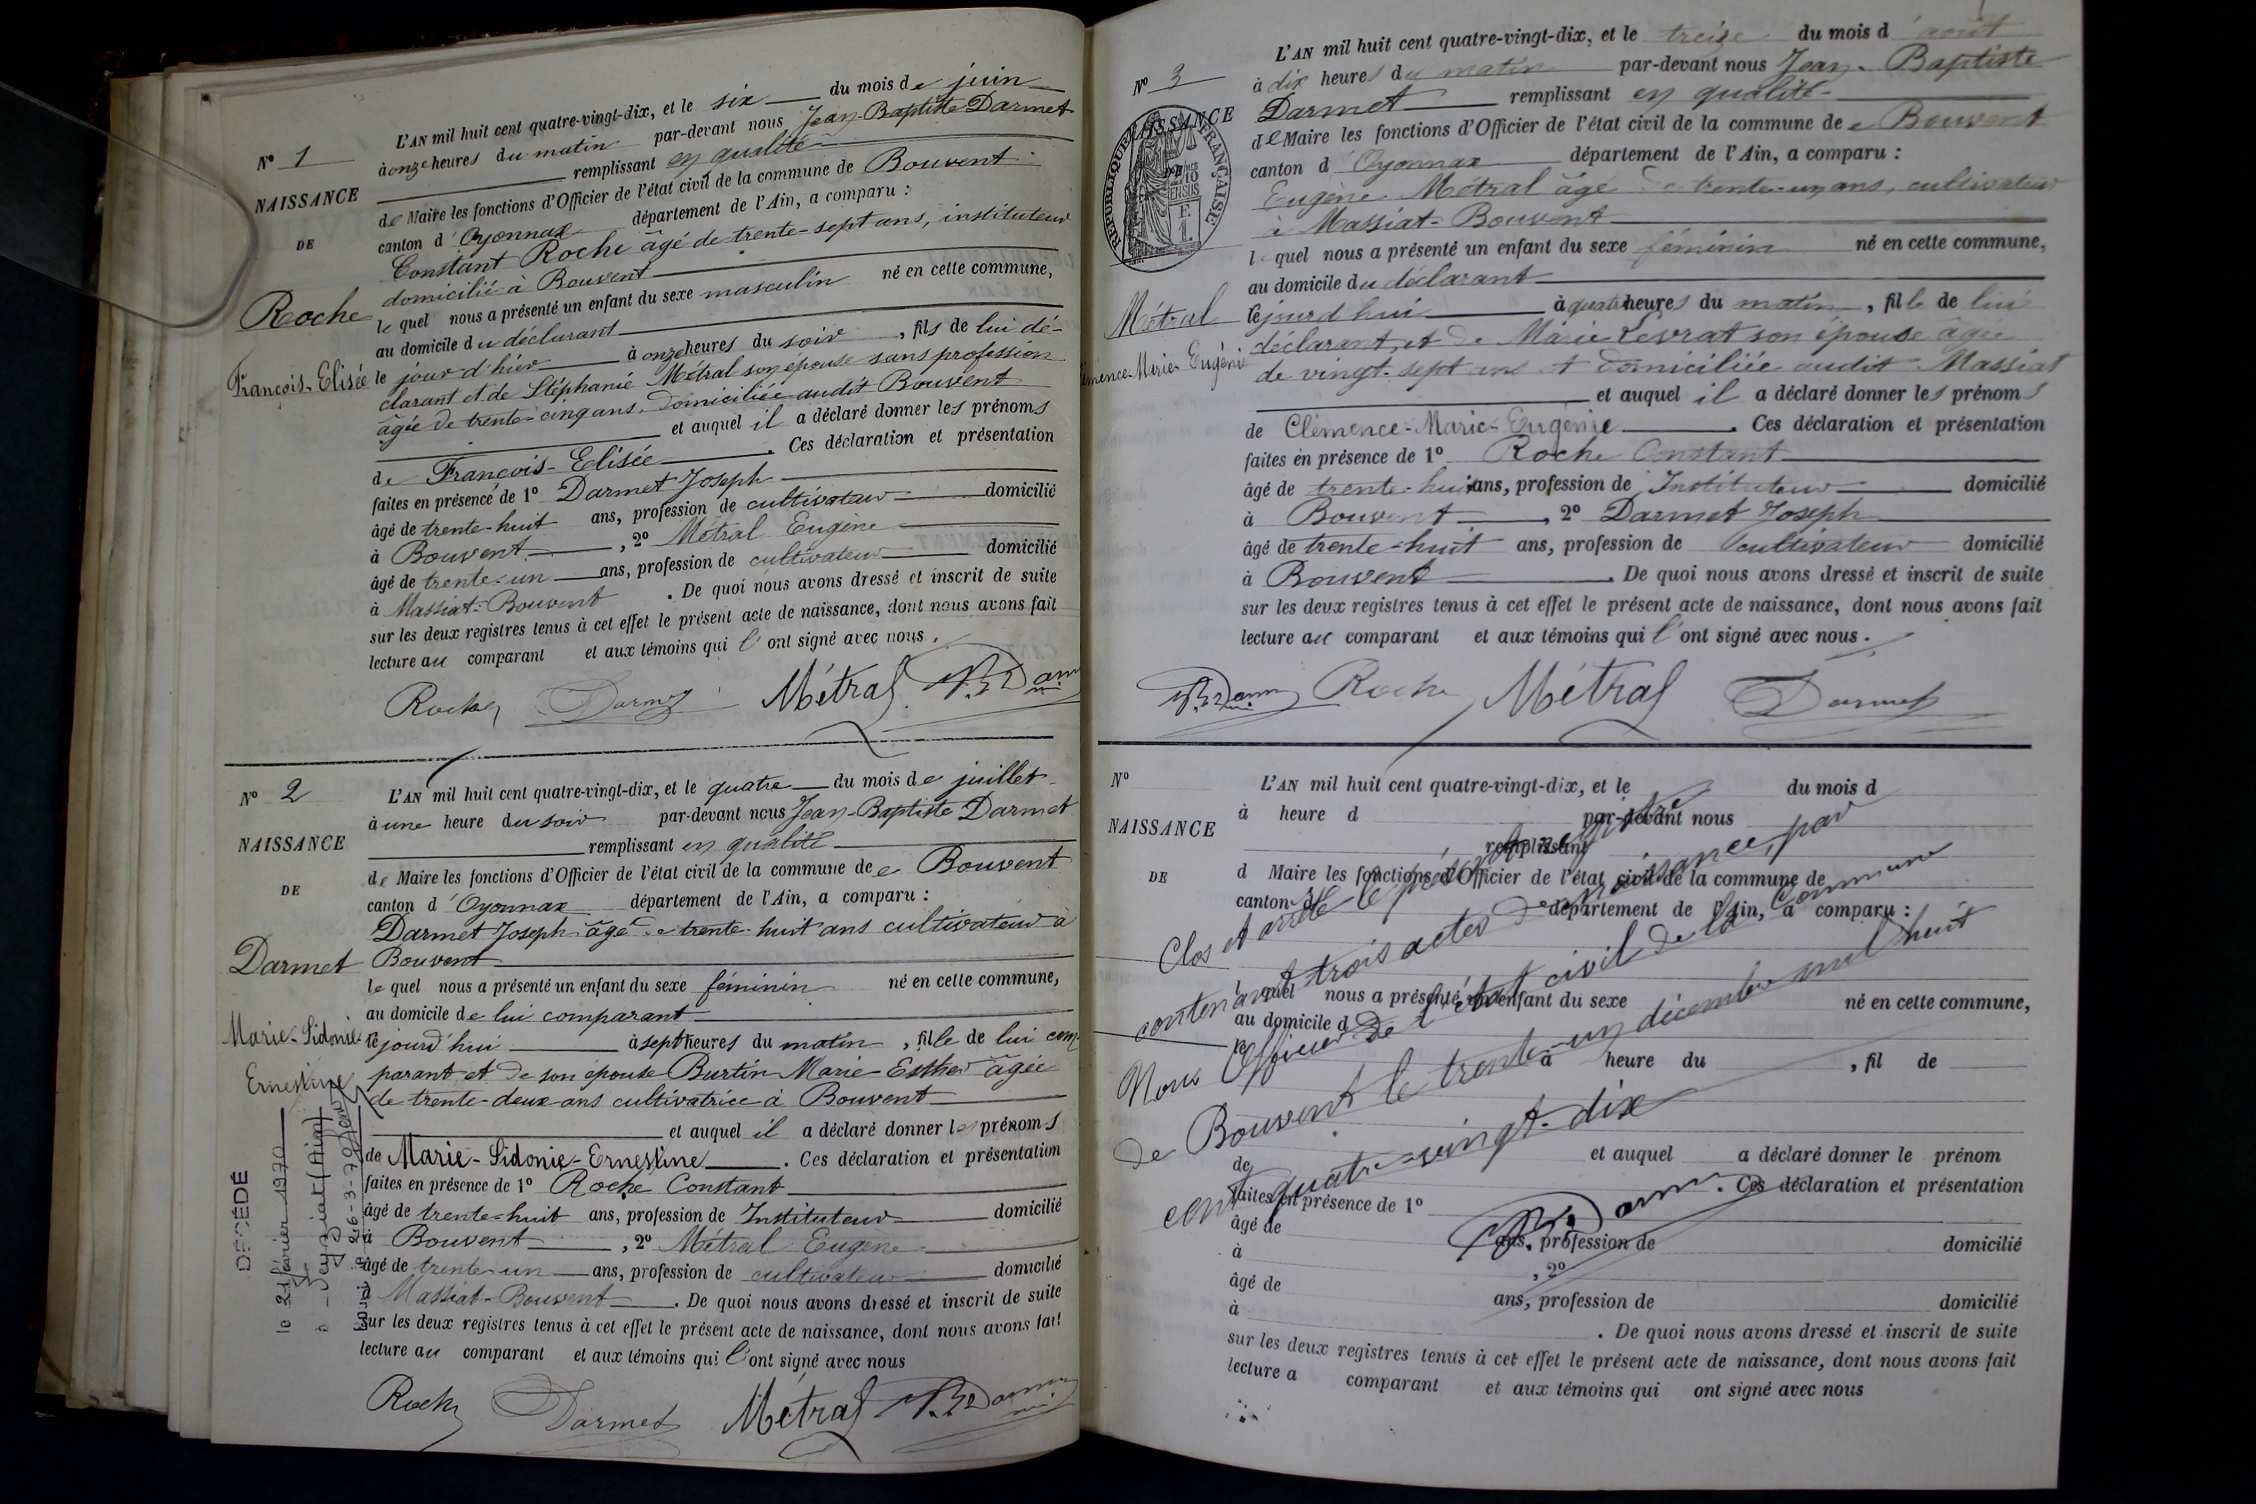 L'AN mil huit cent quatre-vingt-dix, et le six du mois de juin
à onze heures du matin par-devant nous Jean-Baptiste Darmet
remplissant en qualité
de Maire les fonctions d'Officier de l'état civil de la commune de Bouvent
canton d'Oyonnax département de l'Ain, a comparu :
Constant Roche âgé de trente-sept ans, instituteur
domicilié à Bouvent
le quel nous a présenté un enfant du sexe masculin né en cette commune,
au domicile du déclarant
le jour d'hier à onze heures du soir, fils de lui dé-
clarant et de Stéphanie Métral son épouse sans profession
âgée de trente-cinq ans. domiciliée audit Bouvent
et auquel il a déclaré donner les prénoms
de François-Elisée. Ces déclaration et présentation
faites en présence de 1° Darmet Joseph
âgé de trente-huit ans, profession de cultivateur domicilié
à Bouvent, 2° Métral Eugène
âgé de trente-un ans, profession de cultivateur domicilié
à Massiat-Bouvent. De quoi nous avons dressé et inscrit de suite
sur les deux registres tenus à cet effet le présent acte de naissance, dont nous avons fait
lecture au comparant et aux témoins qui l'ont signé avec nous.
N° 1
NAISSANCE
DE
Roche
François-Elisée
Roche Darmet Métral
N° 2
NAISSANCE
DE
Darmet
Marie-Sidonie-
Ernestine
DÉCÉDÉ
le 21 février 1970
à Veyziat (Ain)
26-3-79
L'AN mil huit cent quatre-vingt-dix, et le quatre du mois de juillet
à une heure du soir par-devant nous Jean-Baptiste Darmet
remplissant en qualité
de Maire les fonctions d'Officier de l'état civil de la commune de Bouvent
canton d'Oyonnax département de l'Ain, a comparu :
Darmet Joseph âgé de trente-huit ans cultivateur à
Bouvent
le quel nous a présenté un enfant du sexe féminin né en cette commune,
au domicile de lui comparant
cejourd'hui à sept heures du matin, fille de lui com-
parant et de son épouse Burtin Marie-Esther âgée
de trente-deux ans cultivatrice à Bouvent
et auquel il a déclaré donner les prénoms
de Marie-Sidonie-Ernestine. Ces déclaration et présentation
faites en présence de 1° Roche Constant
âgé de trente-huit ans, profession de Instituteur domicilié
à Bouvent, 2° Métral Eugène
âgé de trente-un ans, profession de cultivateur domicilié
à Massiat-Bouvent. De quoi nous avons dressé et inscrit de suite
sur les deux registres tenus à cet effet le présent acte de naissance, dont nous avons fait
lecture au comparant et aux témoins qui l'ont signé avec nous
Roche Darmet Métral
N° 3
NAISSANCE
DE
RÉPUBLIQUE FRANÇAISE
Métral
Clémence-Marie-Eugénie
L'AN mil huit cent quatre-vingt-dix, et le treize du mois d'août
à dix heures du matin par-devant nous Jean-Baptiste
Darmet remplissant en qualité
de Maire les fonctions d'Officier de l'état civil de la commune de Bouvent
canton d'Oyonnax département de l'Ain, a comparu :
Eugène Métral âgé de trente-un ans, cultivateur
à Massiat-Bouvent
le quel nous a présenté un enfant du sexe féminin né en cette commune,
au domicile du déclarant
cejourd'hui à quatre heures du matin, fille de lui
déclarant, et de Marie Levrat son épouse âgée
de vingt-sept ans et domiciliée audit Massiat
et auquel il a déclaré donner les prénoms
de Clémence-Marie-Eugénie. Ces déclaration et présentation
faites en présence de 1° Roche Constant
âgé de trente-huit ans, profession de Instituteur domicilié
à Bouvent, 2° Darmet Joseph
âgé de trente-huit ans, profession de cultivateur domicilié
à Bouvent. De quoi nous avons dressé et inscrit de suite
sur les deux registres tenus à cet effet le présent acte de naissance, dont nous avons fait
lecture au comparant et aux témoins qui l'ont signé avec nous.
Roche Métral Darmet
N°
NAISSANCE
DE
L'AN mil huit cent quatre-vingt-dix, et le du mois d
à heure d par-devant nous
remplissant
d Maire les fonctions d'Officier de l'état civil de la commune de
canton d département de l'Ain, a comparu :
l quel nous a présenté un enfant du sexe né en cette commune,
au domicile d
le à heure du, fil de
et auquel a déclaré donner le prénom
de. Ces déclaration et présentation
faites en présence de 1°
âgé de ans, profession de domicilié
à, 2°
âgé de ans, profession de domicilié
à. De quoi nous avons dressé et inscrit de suite
sur les deux registres tenus à cet effet le présent acte de naissance, dont nous avons fait
lecture a comparant et aux témoins qui ont signé avec nous
Clos et arrêté le présent registre
contenant trois actes de naissance, par
Nous Officier de l'état civil de la commune
de Bouvent le trente-un décembre mil huit
cent quatre-vingt-dix